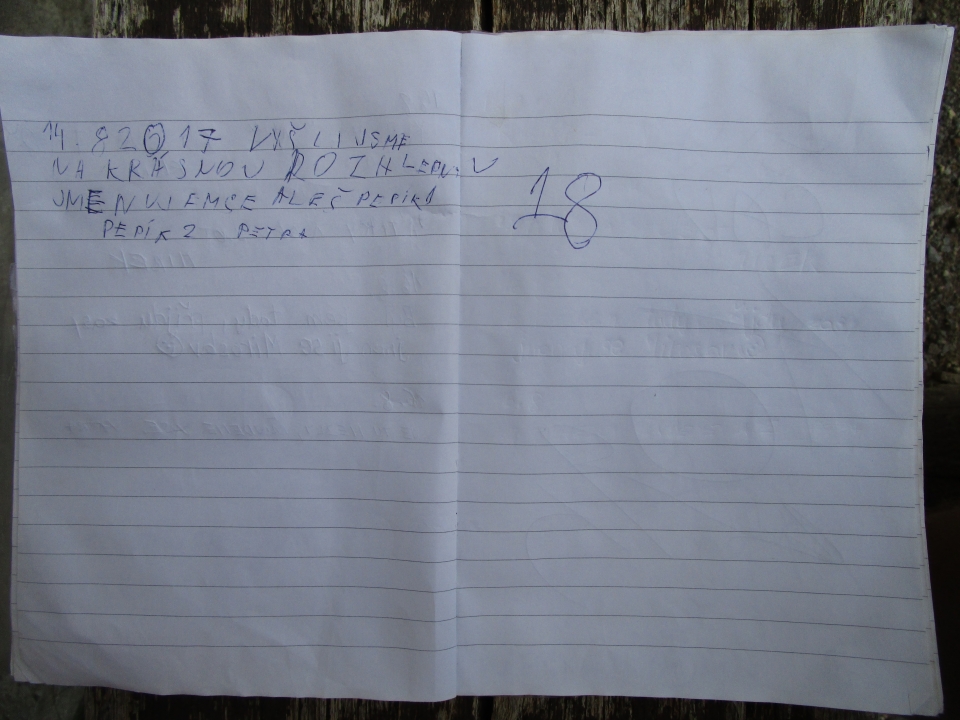 14. 82017 VYŠLI JSME
NA KRÁSNOU ROZHLEDNU
JMENUJEMCE ALEŠ PEPÍK1
PEPÍK 2 PETRA
18